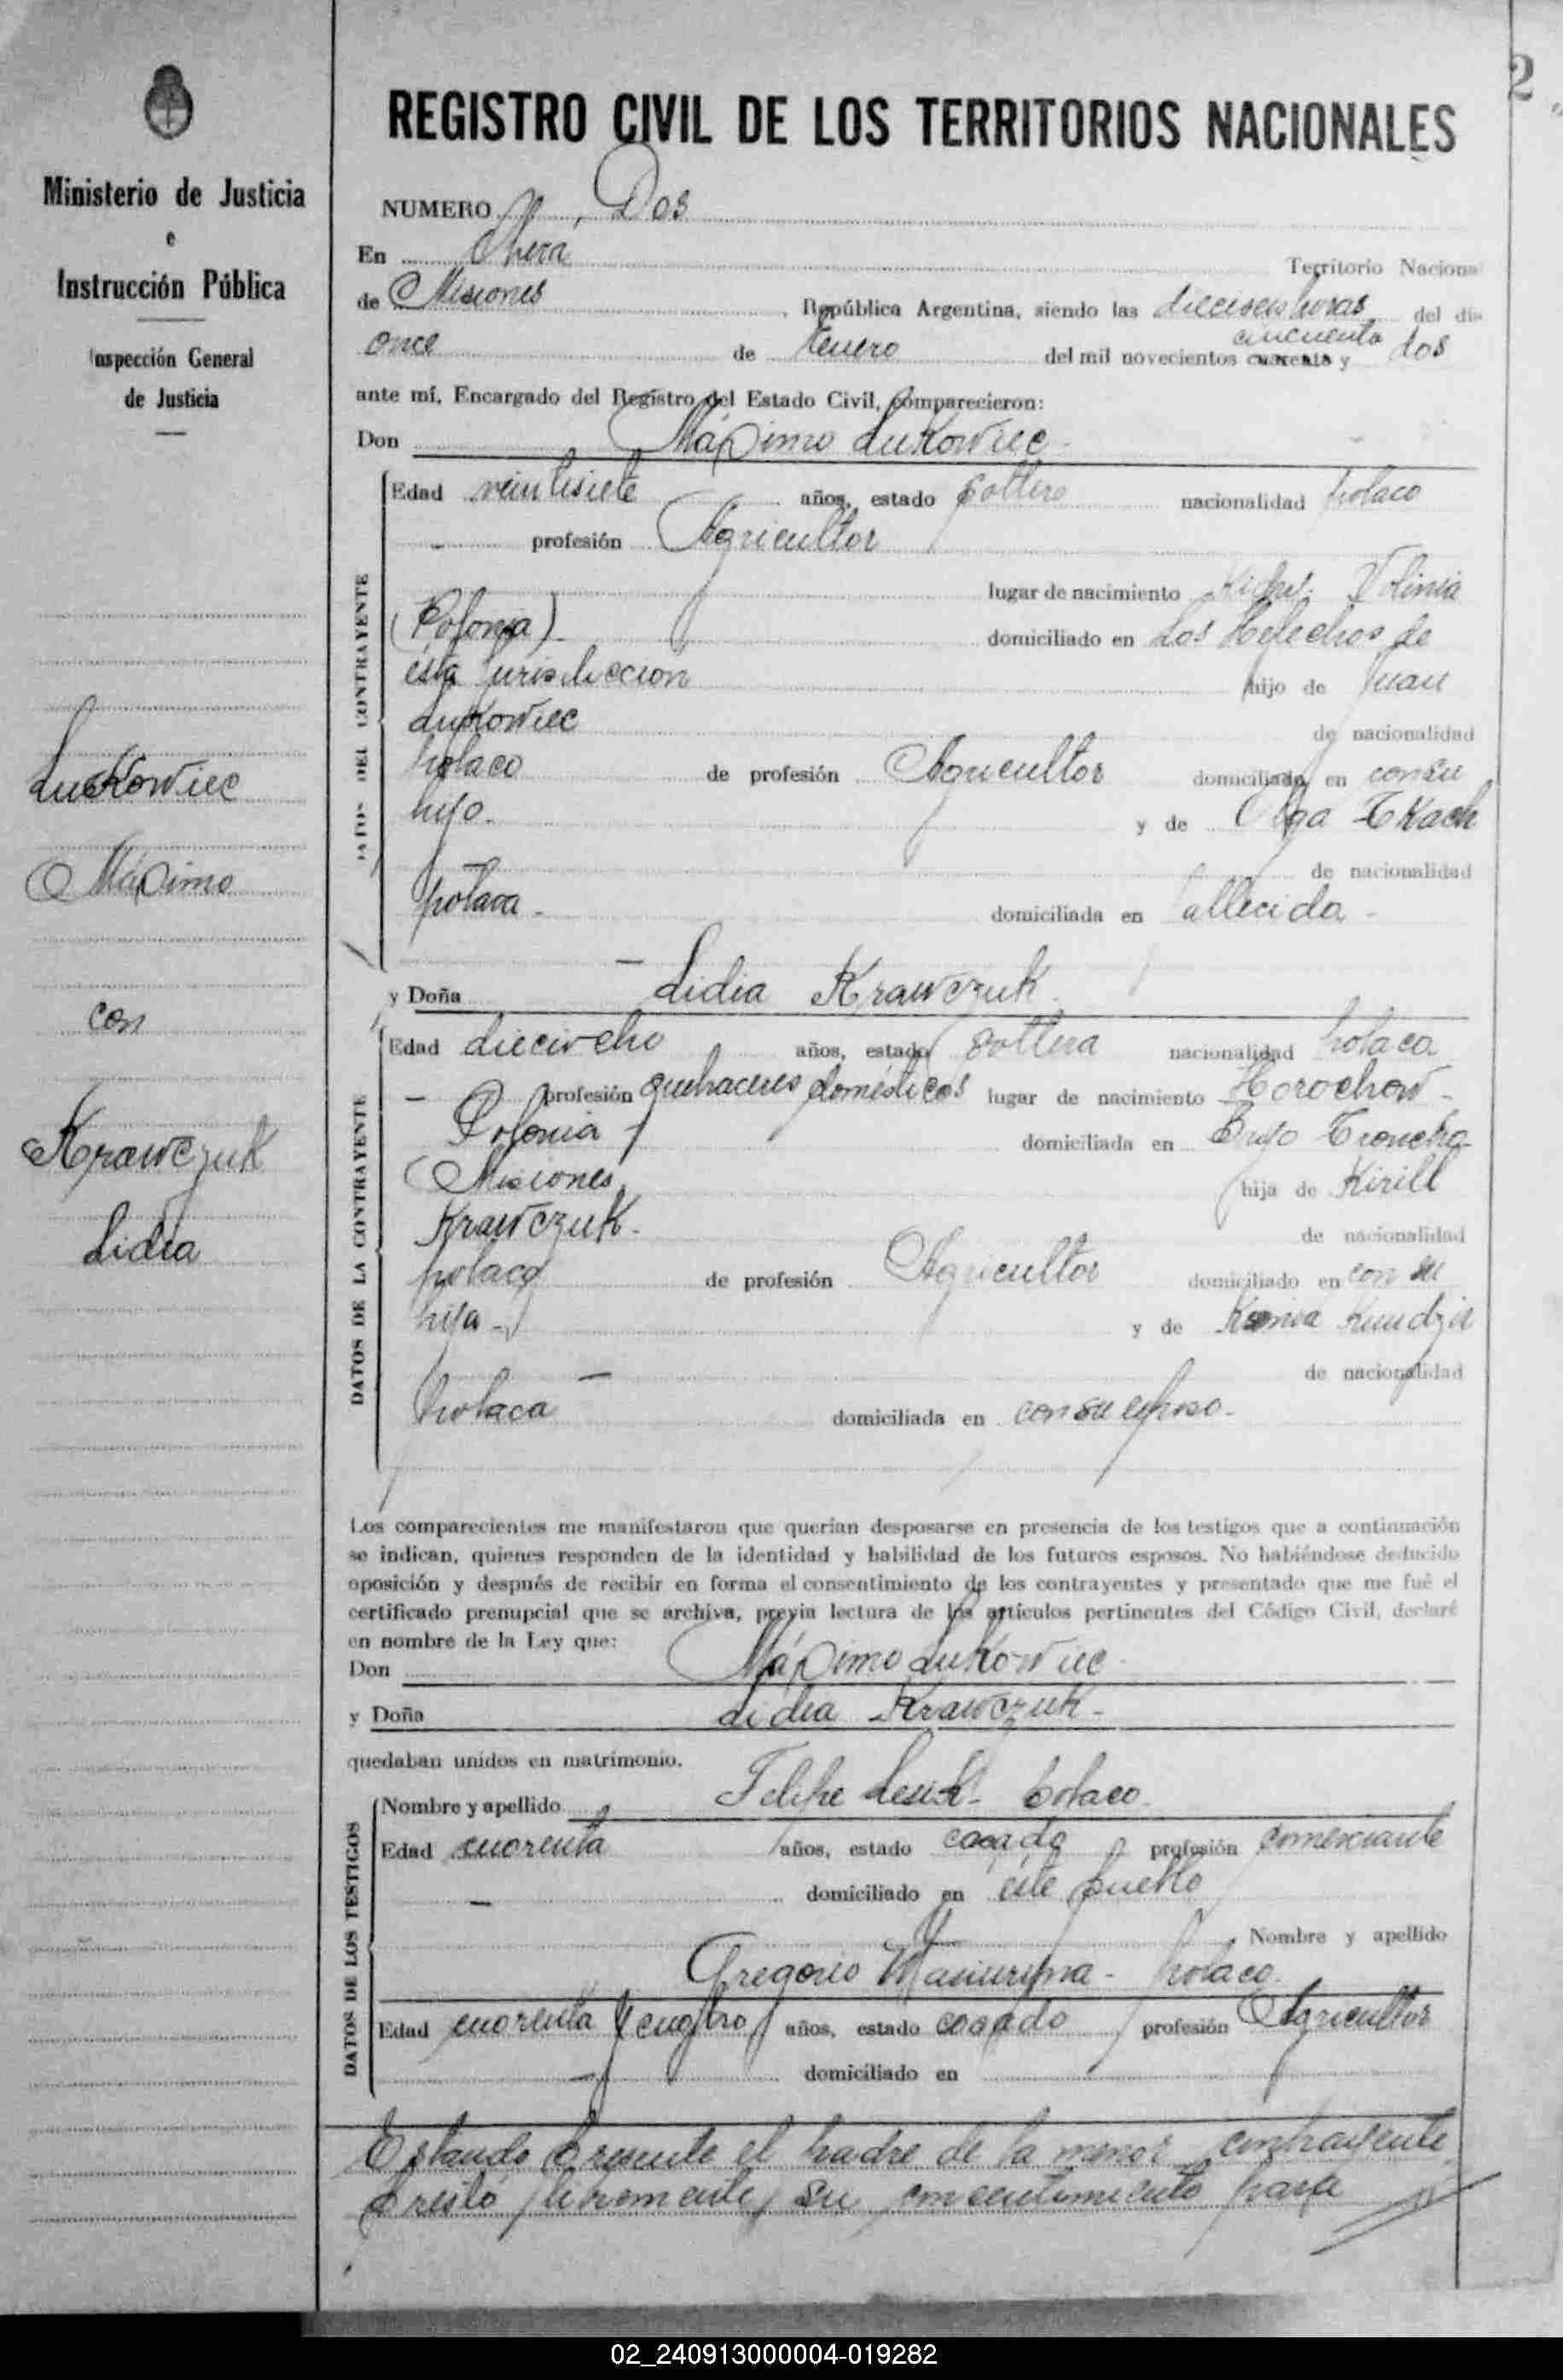 2
Ministerio de Justicia
e
Instrucción Pública
Inspección General
de Justicia
Lukowiec
Máximo
con
Krawczuk
Lidia
REGISTRO CIVIL DE LOS TERRITORIOS NACIONALES
NUMERO Dos
En Oberá Territorio Nacional
de Misiones, República Argentina, siendo las dieciseis horas del día
once de Enero del mil novecientos cuarenta y cincuenta dos
ante mí, Encargado del Registro del Estado Civil, comparecieron:
Don Máximo Lukowiec
DATOS DEL CONTRAYENTE
Edad veintisiete años, estado soltero nacionalidad polaco
profesión Agricultor
lugar de nacimiento Volinia
(Polonia) domiciliado en Los Helechos de
ésta jurisdiccion hijo de Juan
Lukowiec de nacionalidad
polaco de profesión Agricultor domiciliado en con su
hijo. y de Olga Tkach
de nacionalidad
polaca - domiciliada en fallecida -
y Doña Lidia Krawczuk
DATOS DE LA CONTRAYENTE
Edad dieciocho años, estado soltera nacionalidad polaca
- profesión quehaceres domésticos lugar de nacimiento Horochow -
Polonia domiciliada en Bajo Troncho
(Misiones hija de Kirill
Krawczuk. de nacionalidad
polaco de profesión Agricultor domiciliado en con su
hija - y de
de nacionalidad
polaca domiciliada en con su esposo.
Los comparecientes me manifestaron que querían desposarse en presencia de los testigos que a continuación
se indican, quienes responden de la identidad y habilidad de los futuros esposos. No habiéndose deducido
oposición y después de recibir en forma el consentimiento de los contrayentes y presentado que me fué el
certificado prenupcial que se archiva, previa lectura de los artículos pertinentes del Código Civil, declaré
en nombre de la Ley que:
Don Máximo Lukowiec
y Doña Lidia Krawczuk -
quedaban unidos en matrimonio.
DATOS DE LOS TESTIGOS
Nombre y apellido Felipe - polaco.
Edad cuarenta años, estado casado profesión comerciante
domiciliado en éste pueblo
Nombre y apellido
Gregorio - polaco.
Edad cuarenta y cuatro años, estado casado profesión Agricultor
domiciliado en
Estando presente el padre de la menor contrayente
prestó libremente su consentimiento para
02_240913000004-019282